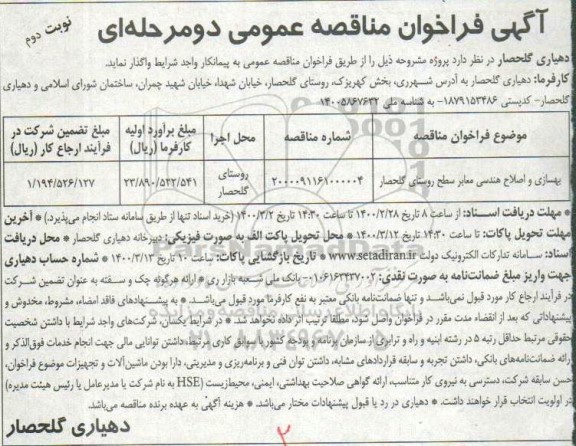 آگهی فراخوان مناقصه عمومی دومرحله‌ای
نوبت دوم
دهیاری گلحصار در نظر دارد پروژه مشروحه ذیل را از طریق فراخوان مناقصه عمومی به پیمانکار واجد شرایط واگذار نماید.
کارفرما: دهیاری گلحصار به آدرس شهرری، بخش کهریزک، روستای گلحصار، خیابان شهدا، خیابان شهید چمران، ساختمان شورای اسلامی و دهیاری
گلحصار- کدپستی ۱۸۷۹۱۵۳۴۸۶- به شناسه ملی ۱۴۰۰۵۸۶۷۶۳۲
موضوع فراخوان مناقصه | شماره مناقصه | محل اجرا | مبلغ برآورد اولیه کارفرما (ریال) | مبلغ تضمین شرکت در فرآیند ارجاع کار (ریال)
بهسازی و اصلاح هندسی معابر سطح روستای گلحصار | ۲۰۰۰۰۹۱۱۶۱۰۰۰۰۰۴ | روستای گلحصار | ۲۳/۸۹۰/۵۳۲/۵۴۱ | ۱/۱۹۴/۵۲۶/۱۲۷
* مهلت دریافت اسناد: از ساعت ۸ تاریخ ۱۴۰۰/۲/۲۸ تا ساعت ۱۴:۳۰ تاریخ ۱۴۰۰/۳/۲ (خرید اسناد تنها از طریق سامانه ستاد انجام می‌پذیرد.) * آخرین
مهلت تحویل پاکات: تا ساعت ۱۴:۳۰ تاریخ ۱۴۰۰/۳/۱۲ * محل تحویل پاکت الف به صورت فیزیکی: دبیرخانه دهیاری گلحصار * محل دریافت
اسناد: سامانه تدارکات الکترونیک دولت www.setadiran.ir * تاریخ بازگشایی پاکات: ساعت ۱۰ تاریخ ۱۴۰۰/۳/۱۳ * شماره حساب دهیاری
جهت واریز مبلغ ضمانت‌نامه به صورت نقدی: ۰۱۰۶۱۶۲۴۳۷۰۰۲ بانک ملی شعبه بازار ری * ارائه هرگونه چک و سفته به عنوان تضمین شرکت
در فرآیند ارجاع کار مورد قبول نمی‌باشد و تنها ضمانت‌نامه بانکی معتبر به نفع کارفرما مورد قبول می‌باشد. * به پیشنهادهای فاقد امضاء، مشروط، مخدوش و
پیشنهاداتی که بعد از انقضاء مدت مقرر در فراخوان واصل شود، مطلقا ترتیب اثر داده نخواهد شد. * در شرایط یکسان، شرکت‌های واجد شرایط با داشتن شخصیت
حقوقی مرتبط حداقل رتبه ۵ در رشته ابنیه و راه و ترابری از سازمان برنامه و بودجه کشور با سوابق کاری مرتبط، داشتن توانایی مالی جهت انجام خدمات فوق‌الذکر و
ارائه ضمانت‌نامه‌های بانکی، داشتن تجربه و سابقه قراردادهای مشابه، داشتن توان فنی و برنامه‌ریزی و مدیریتی، دارا بودن ماشین‌آلات و تجهیزات موضوع فراخوان،
حسن سابقه شرکت، دسترسی به نیروی کار متناسب، ارائه گواهی صلاحیت بهداشتی، ایمنی، محیط‌زیست (HSE به نام شرکت یا مدیرعامل یا رئیس هیئت مدیره)
در اولویت انتخاب قرار خواهند داشت. * دهیاری در رد یا قبول پیشنهادات مختار می‌باشد. * هزینه آگهی به عهده برنده مناقصه می‌باشد.
دهیاری گلحصار
۲